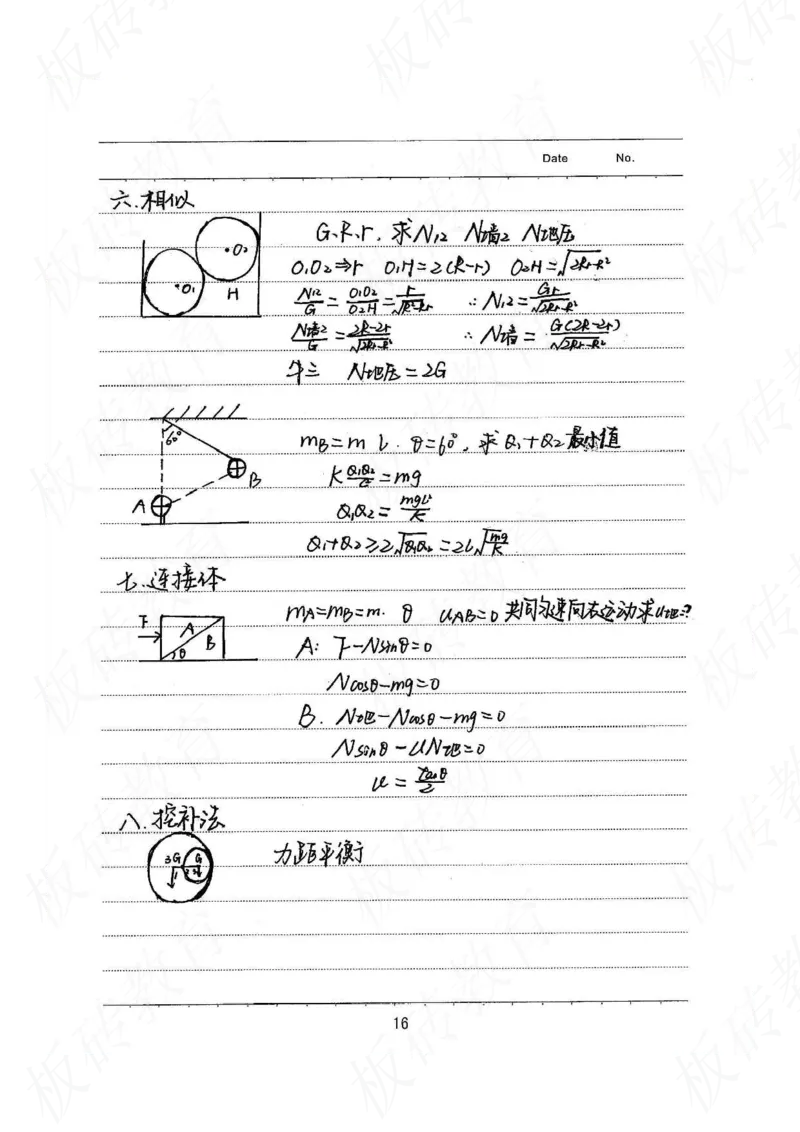 Date No.
六.相似
G.R.r. 求N12 N墙2 N地压
O1O2⇒r O1H=2(R-r) O2H=√(2Rr-R²)
•O2
•O1 H
N12/G = O1O2/O2H = r/√(R²-Rr) ∴ N12 = Gr/√(2Rr-R²)
N墙2/G = (2R-2r)/√(2Rr-R²) ∴ N墙 = G(2R-2r)/√(2Rr-R²)
牛三 N地压=2G
60°
mB=m l. θ=60°, 求Q1+Q2最小值
B
K Q1Q2/l² = mg
A
Q1Q2 = mgl²/K
Q1+Q2≥2√Q1Q2 = 2l√(mg/K)
七.连接体
mA=mB=m. θ uAB=0 共同匀速向右运动求u地=?
F A B θ
A: F-Nsinθ=0
Ncosθ-mg=0
B. N地-Ncosθ-mg=0
Nsinθ-uN地=0
u = tanθ/2
八.挖补法
3G G
力距平衡
16
板砖教育